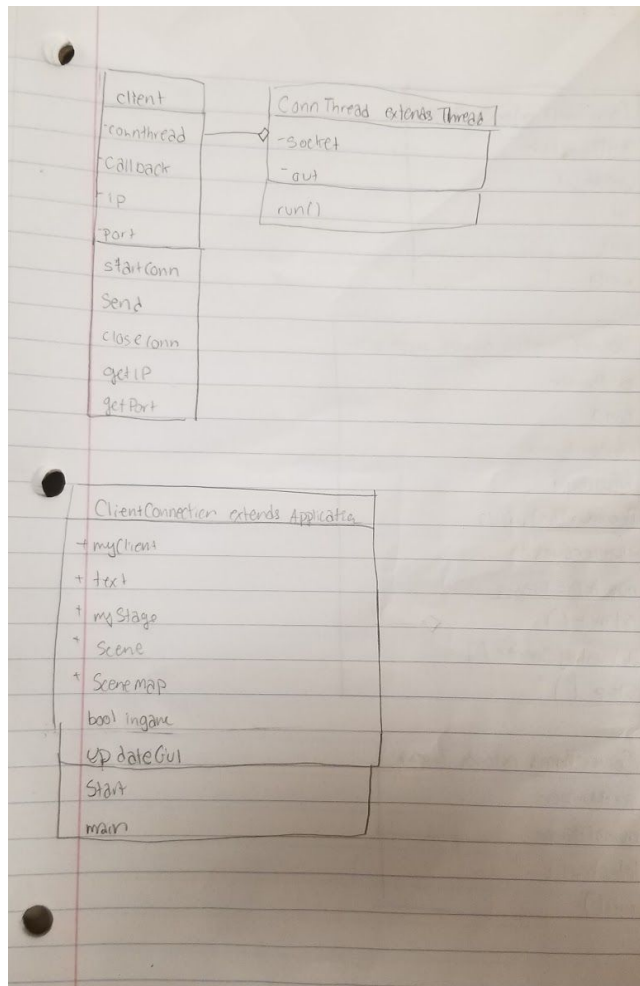 client
-connthread
-Callback
-ip
-port
startConn
Send
closeConn
getIP
getPort
ConnThread extends Thread
-socket
-out
run()
ClientConnection extends Applicatio
+ myClient
+ text
+ myStage
+ Scene
+ Scenemap
bool ingame
updateGUI
Start
main